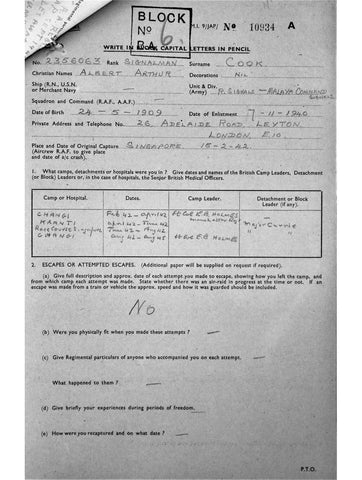 BLOCK
No 6.
M.I. 9/JAP/ No 10934 A
WRITE IN BLOCK CAPITAL LETTERS IN PENCIL
No. 2356063 Rank SIGNALMAN Surname COOK
Christian Names ALBERT ARTHUR Decorations NIL
Ship (R.N., U.S.N. or Merchant Navy — Unit & Div. (Army) R. SIGNALS — MALAYA COMMAND SIGNALS
Squadron and Command (R.A.F., A.A.F.) —
Date of Birth 24-5-1909 Date of Enlistment 7-11-1940
Private Address and Telephone No. 26, ADELAIDE ROAD, LEYTON,
LONDON, E.10.
Place and Date of Original Capture SINGAPORE 15-2-42.
(Aircrew R.A.F. to give place
and date of a/c crash).
1. What camps, detachments or hospitals were you in? Give dates and names of the British Camp Leaders, Detachment
(or Block) Leaders or, in the case of hospitals, the Senior British Medical Officers.
Camp or Hospital. Dates. Camp Leader. Detachment or Block Leader (if any).
CHANGI Feb 42 — April 42 Lt Col E.B. HOLMES —
April 42 — June 42 Major
June 42 — Aug 42 "
CHANGI Aug 42 — Aug 45 Lt Col E.B HOLMES
2. ESCAPES OR ATTEMPTED ESCAPES. (Additional paper will be supplied on request if required).
(a) Give full description and approx. date of each attempt you made to escape, showing how you left the camp, and
from which camp each attempt was made. State whether there was an air-raid in progress at the time or not. If an
escape was made from a train or vehicle the approx. speed and how it was guarded should be included.
No
(b) Were you physically fit when you made these attempts? —
(c) Give Regimental particulars of anyone who accompanied you on each attempt. —
What happened to them? —
(d) Give briefly your experiences during periods of freedom. —
(e) How were you recaptured and on what date? —
P.T.O.